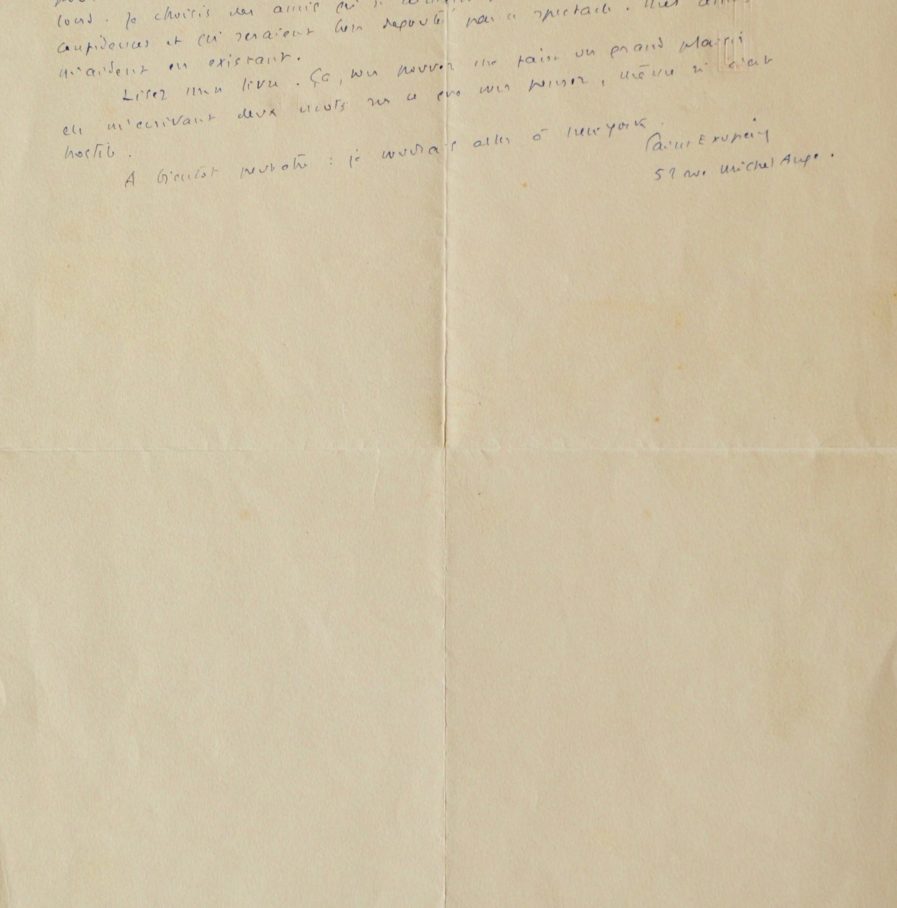 lourd. Je choisis des amis qui
confidences et qui seraient bien dégoûtés par ce spectacle. Mes amis
m'aident en existant.
Lisez mon livre. Ça, vous pouvez me faire un grand plaisir
en m'écrivant deux mots sur ce que vous pensez, même si c'est
hostile.
A bientôt peut-être : je voudrais aller à New York.
Saint Exupéry
52 rue Michel Ange.